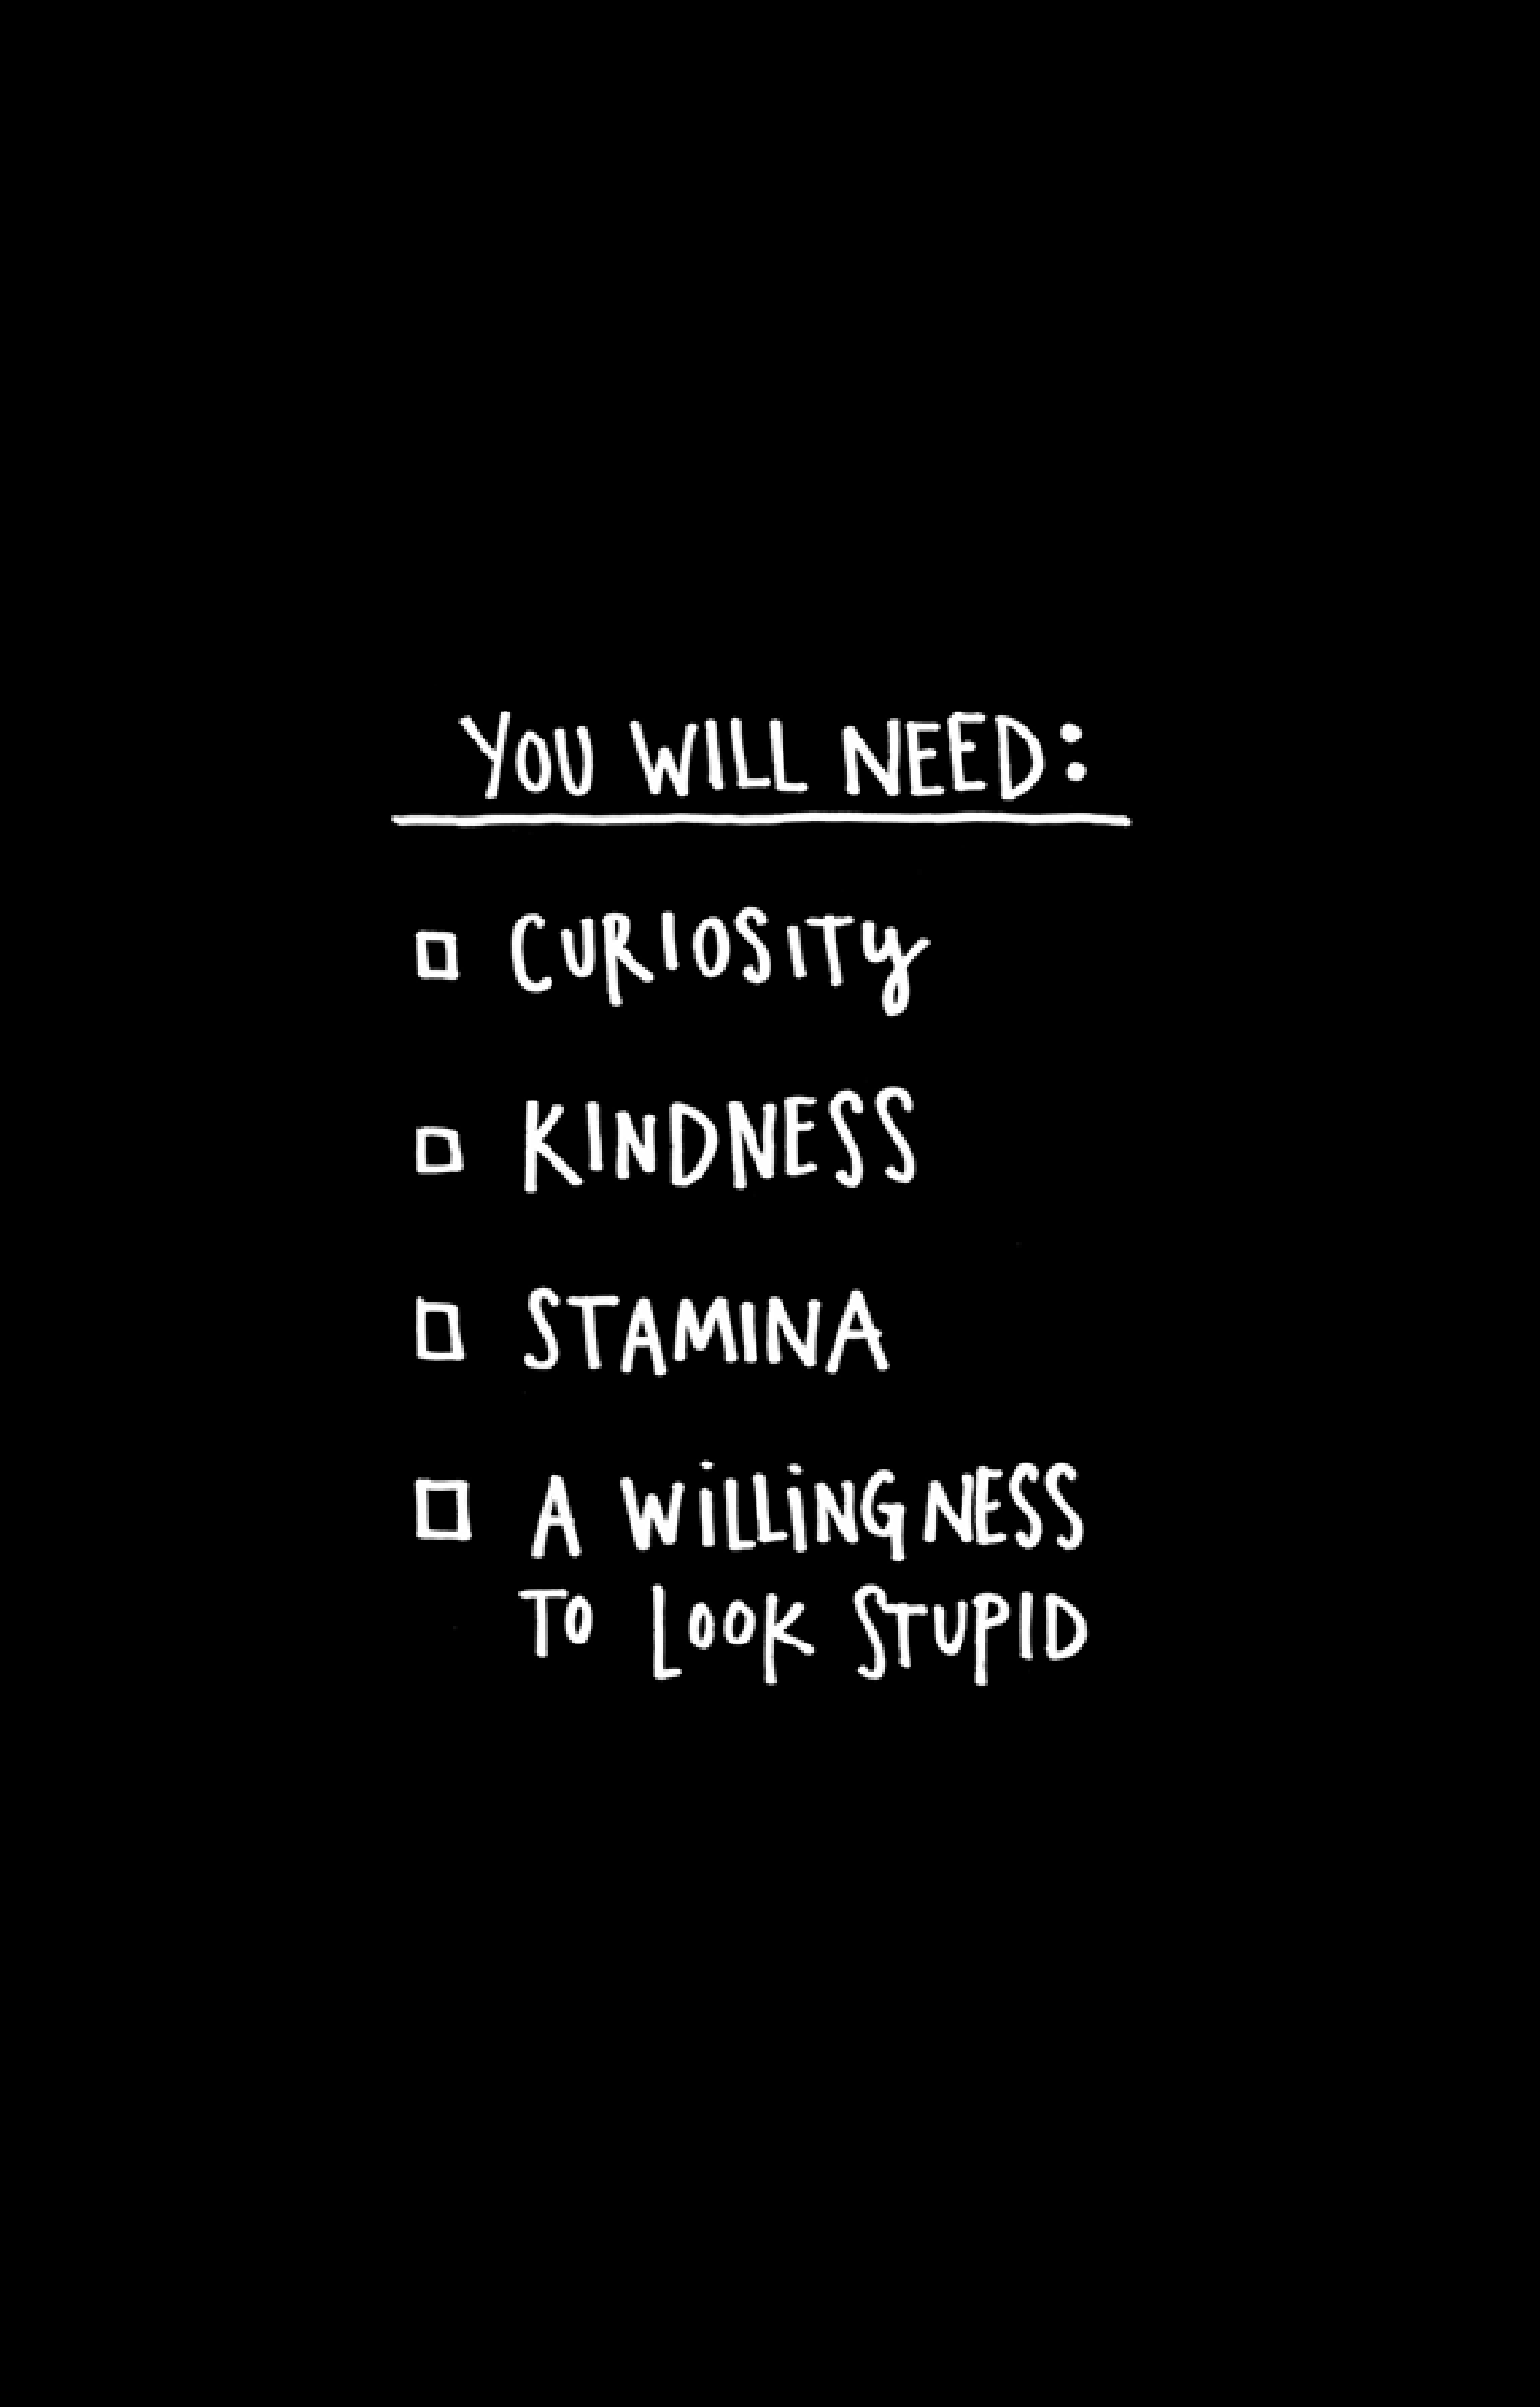 YOU WILL NEED:
CURIOSITY
KINDNESS
STAMINA
A WiLLiNGNESS
TO LOOK STUPID